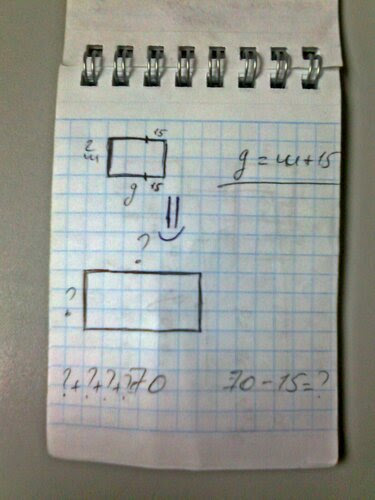 15
2
ш
g 15
g = ш + 15
?
?
?+?+?+?=70
70-15=?